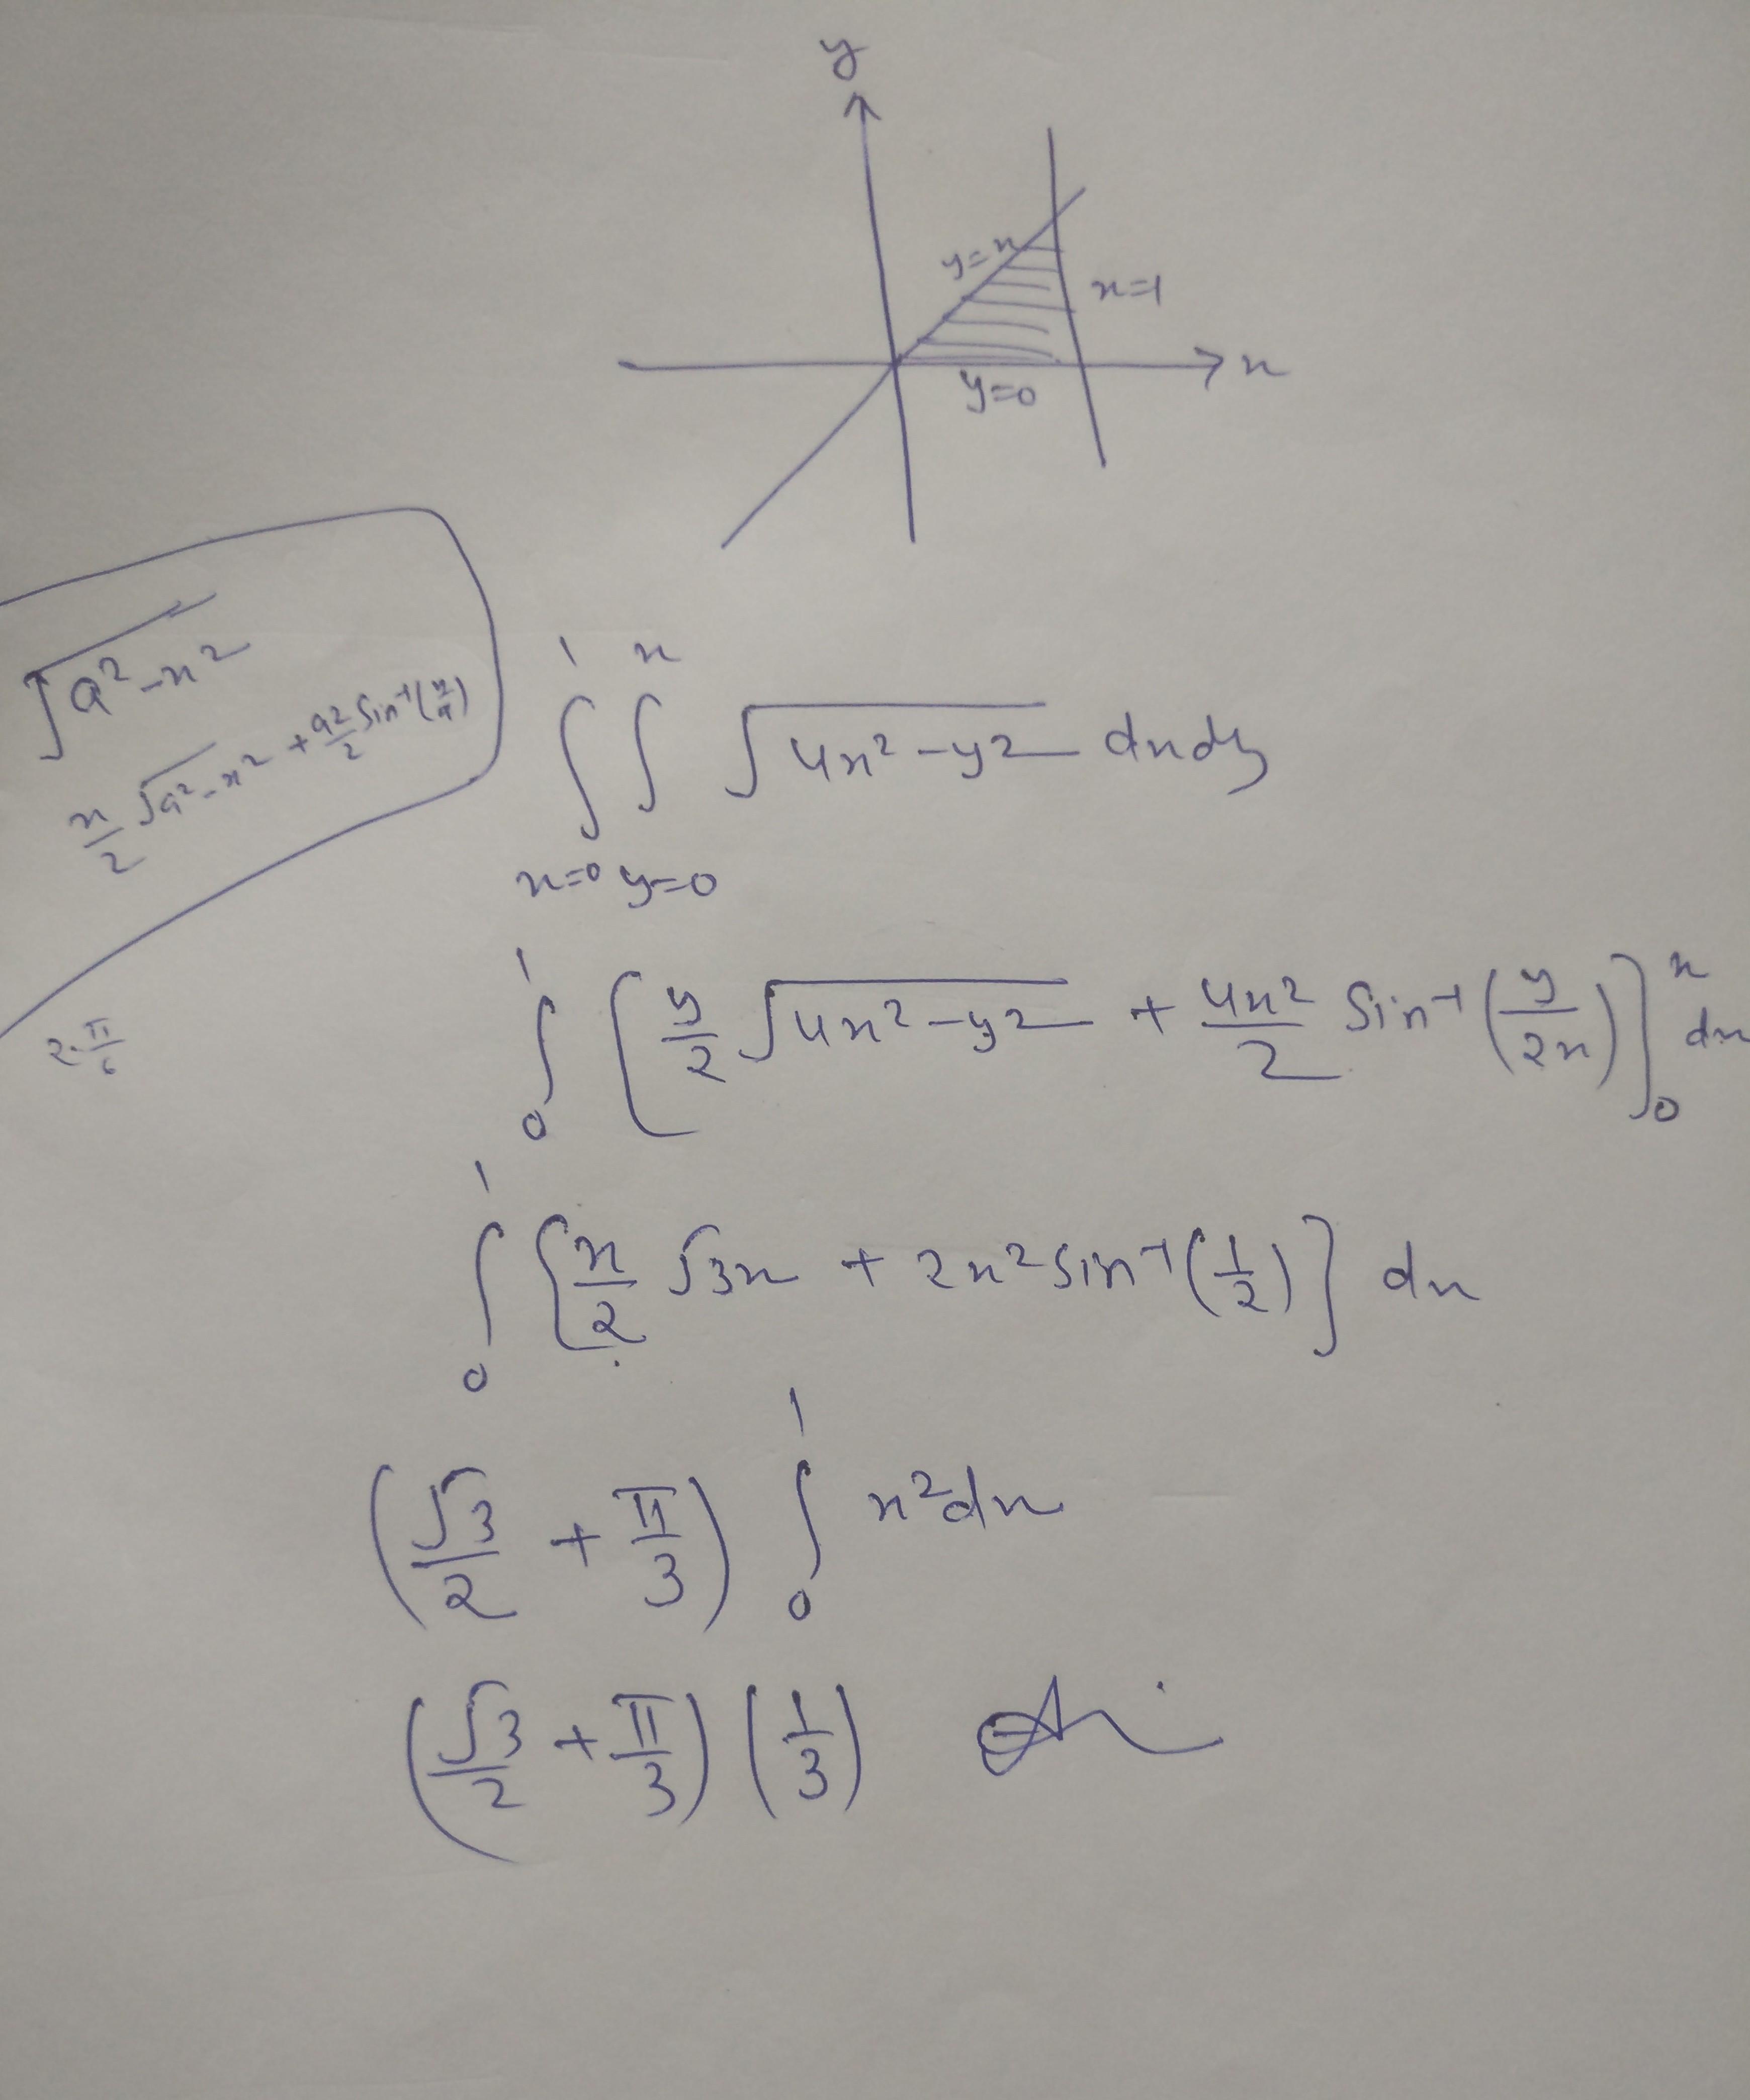 y
y=x
x=1
x
y=0
√a²-x²
x/2 √a²-x² + a²/2 Sin⁻¹(x/a)
∫₍ₓ₌₀₎¹ ∫₍y₌₀₎ˣ √4x²-y² dxdy
∫₀¹ [y/2 √4x²-y² + 4x²/2 Sin⁻¹(y/2x)]₀ˣ dx
2·π/6
∫₀¹ [x/2 √3x + 2x² Sin⁻¹(1/2)] dx
(√3/2 + π/3) ∫₀¹ x²dx
(√3/2 + π/3) (1/3)